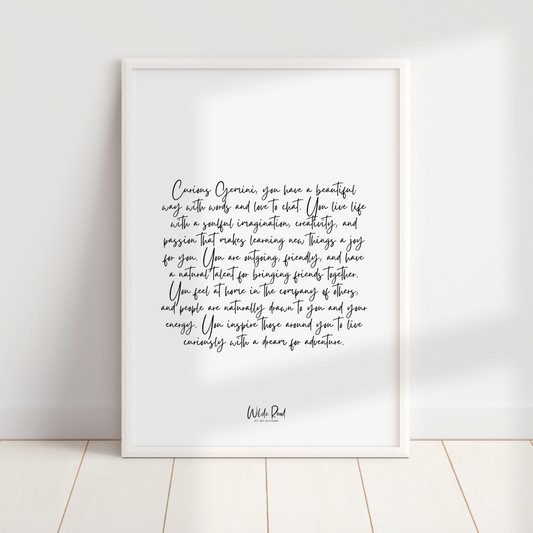 Curious Gemini, you have a beautiful
way with words and love to chat. You live life
with a soulful imagination, creativity, and
passion that makes learning new things a joy
for you. You are outgoing, friendly, and have
a natural talent for bringing friends together.
You feel at home in the company of others,
and people are naturally drawn to you and your
energy. You inspire those around you to live
curiously with a dream for adventure.
Wilde Road